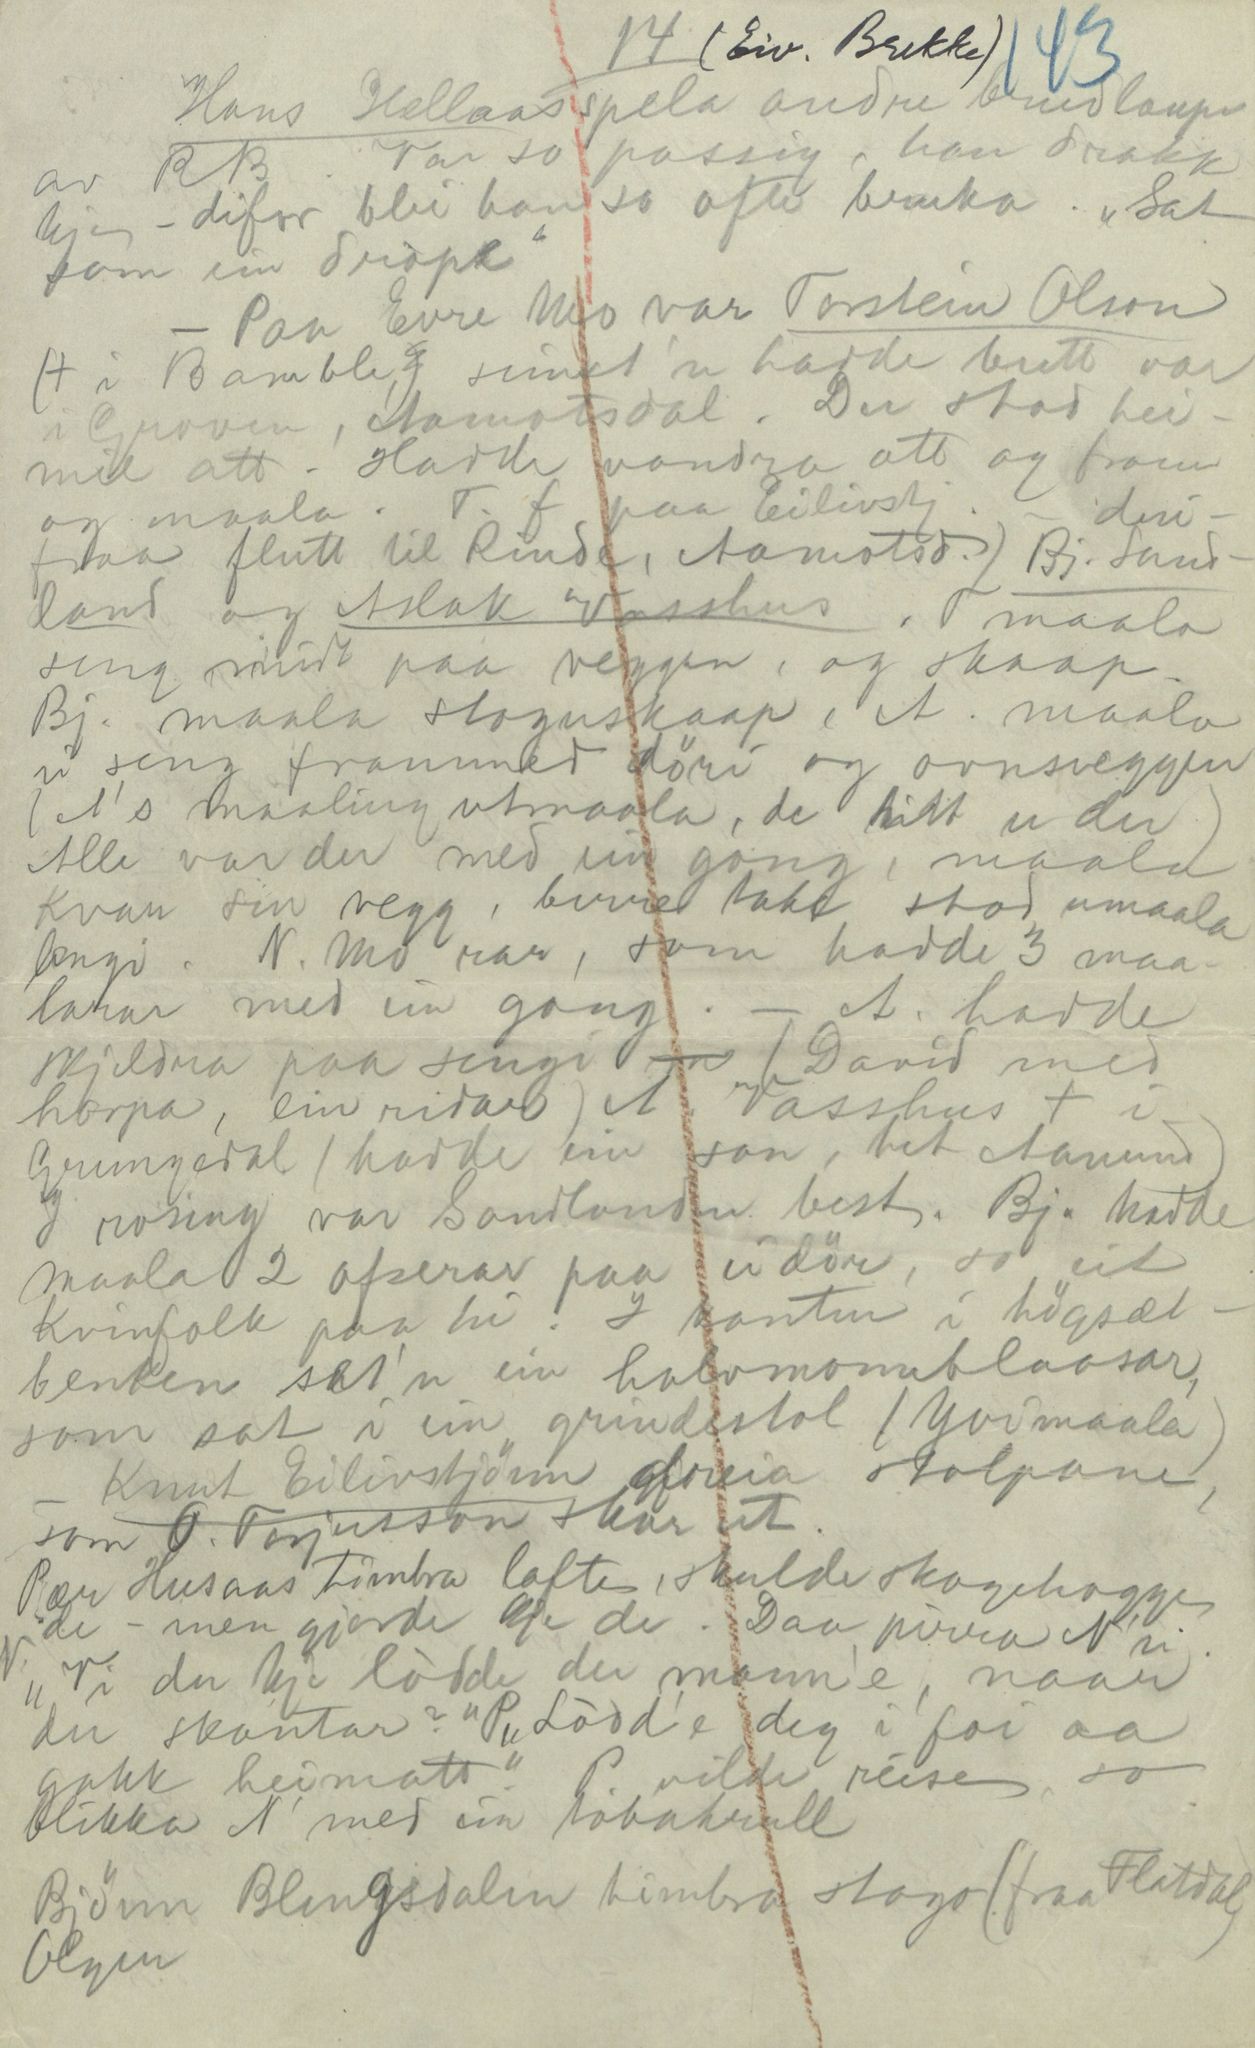 14 (Eiv. Brekke) 143
Hans Hellaas spela andre brudlaupe
av RB. Var so passig, han drakk
kje, - difor blei han so ofte bruka. „Sat
som ein dròpe“
- Paa Evre Mo var Torstein Olson
(+ i Bamble, sine't'n hadde butt var
i Groven, Aamotsdal. Der stod hei-
mil att. Hadde vandra att og fram
og maala. T. f. paa Eilivstj. - deri-
fraa flutt til Rinde, Aamotsd.) Bj. Sand-
land og Aslak Vasshus. T maala
seng midt paa veggen, og skaap.
Bj. maala stoguskaap, A. maala
ei seng frammed döri og ovnsveggen
(A's maaling utmaala, de hitt er der)
Alle var der med ein gong, maala
kvar sin vegg, berre take stod umaala
lengi. N. Mo rar, som hadde 3 maa-
larar med ein gong. - A. hadde
skjeldra paa sengi (David med
harpa, ein ridar) A. Vasshus + i
Grungedal (hadde ein son, het Aanund)
I rosing var Sandlanden best. Bj. hadde
maala 2 ofserar paa ei dör, so eit
kvinfolk paa hi. I kanten i högsæt-
benken set'n ein halvmonublaasar,
som sat i ein grindestol (Yvimaala)
- Knut Eilivstjönn greia stolpane,
som O. Torjusson skar ut.
Pær Husaas timbra lofte, skulde skogehogge
de - men gjorde kje de. Daa pirra N'n.
N. „Vi du kje lòdde der mann'e, naar
du skantar?“ P„Lòdd'e deg i foi aa
gakk heimatt.“ P. vilde reise, so
blikka N' med ein tobakrull
Björn Blengsdalen timbra stogo (fraa Flatdal)
Olgen